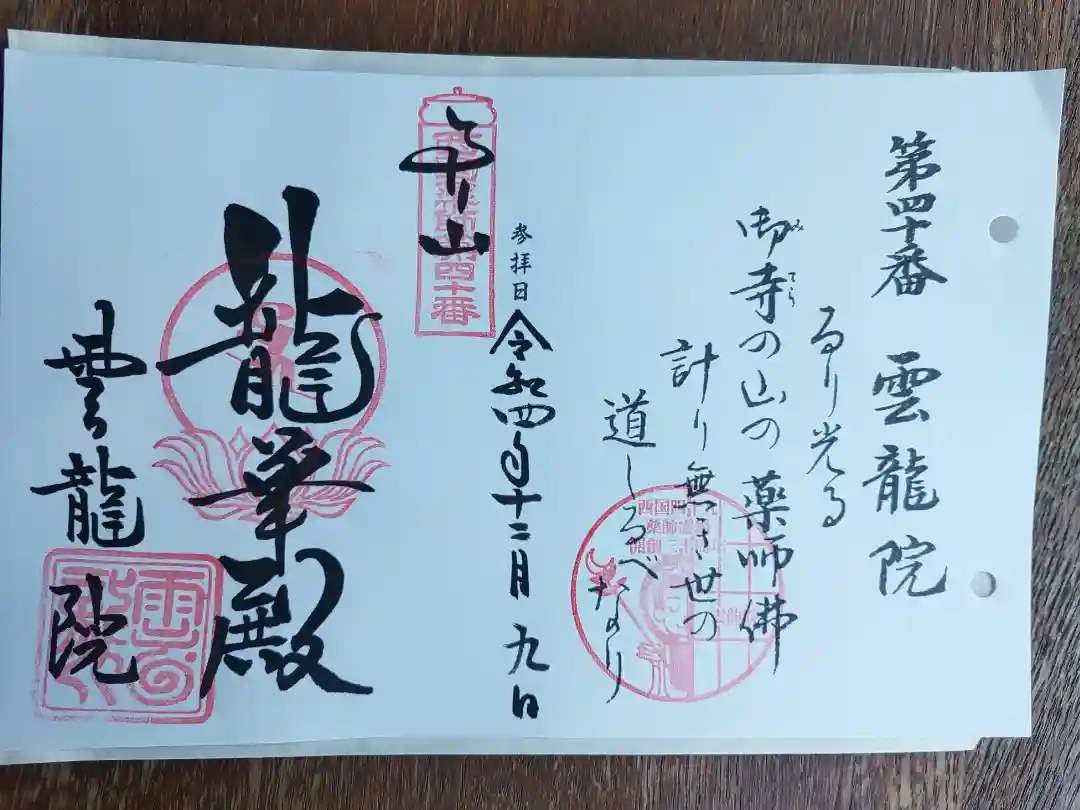 第四十番 雲龍院
るり光る
御寺の山の薬師佛
みてら
計り無き世の
道しるべなり
参拝日 令和四年十二月九日
西国薬師第四十番
山
龍華殿
雲龍院